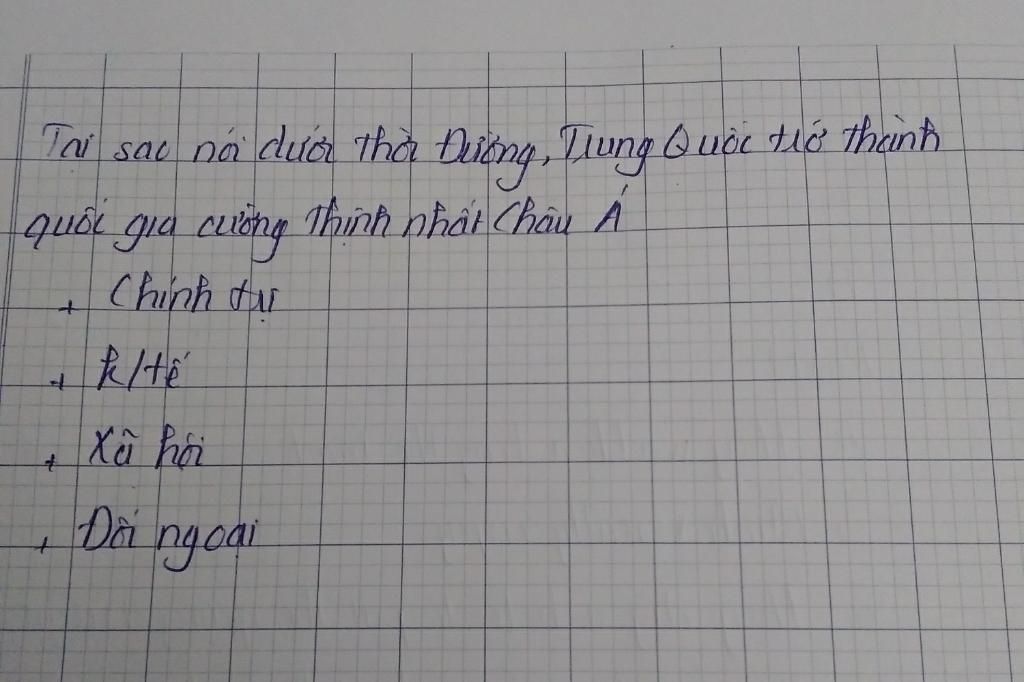 Tại sao nói dưới thời Đường, Trung Quốc trở thành
quốc gia cường thịnh nhất Châu Á
+ Chính trị
+ k/tế
+ Xã hội
+ Đối ngoại